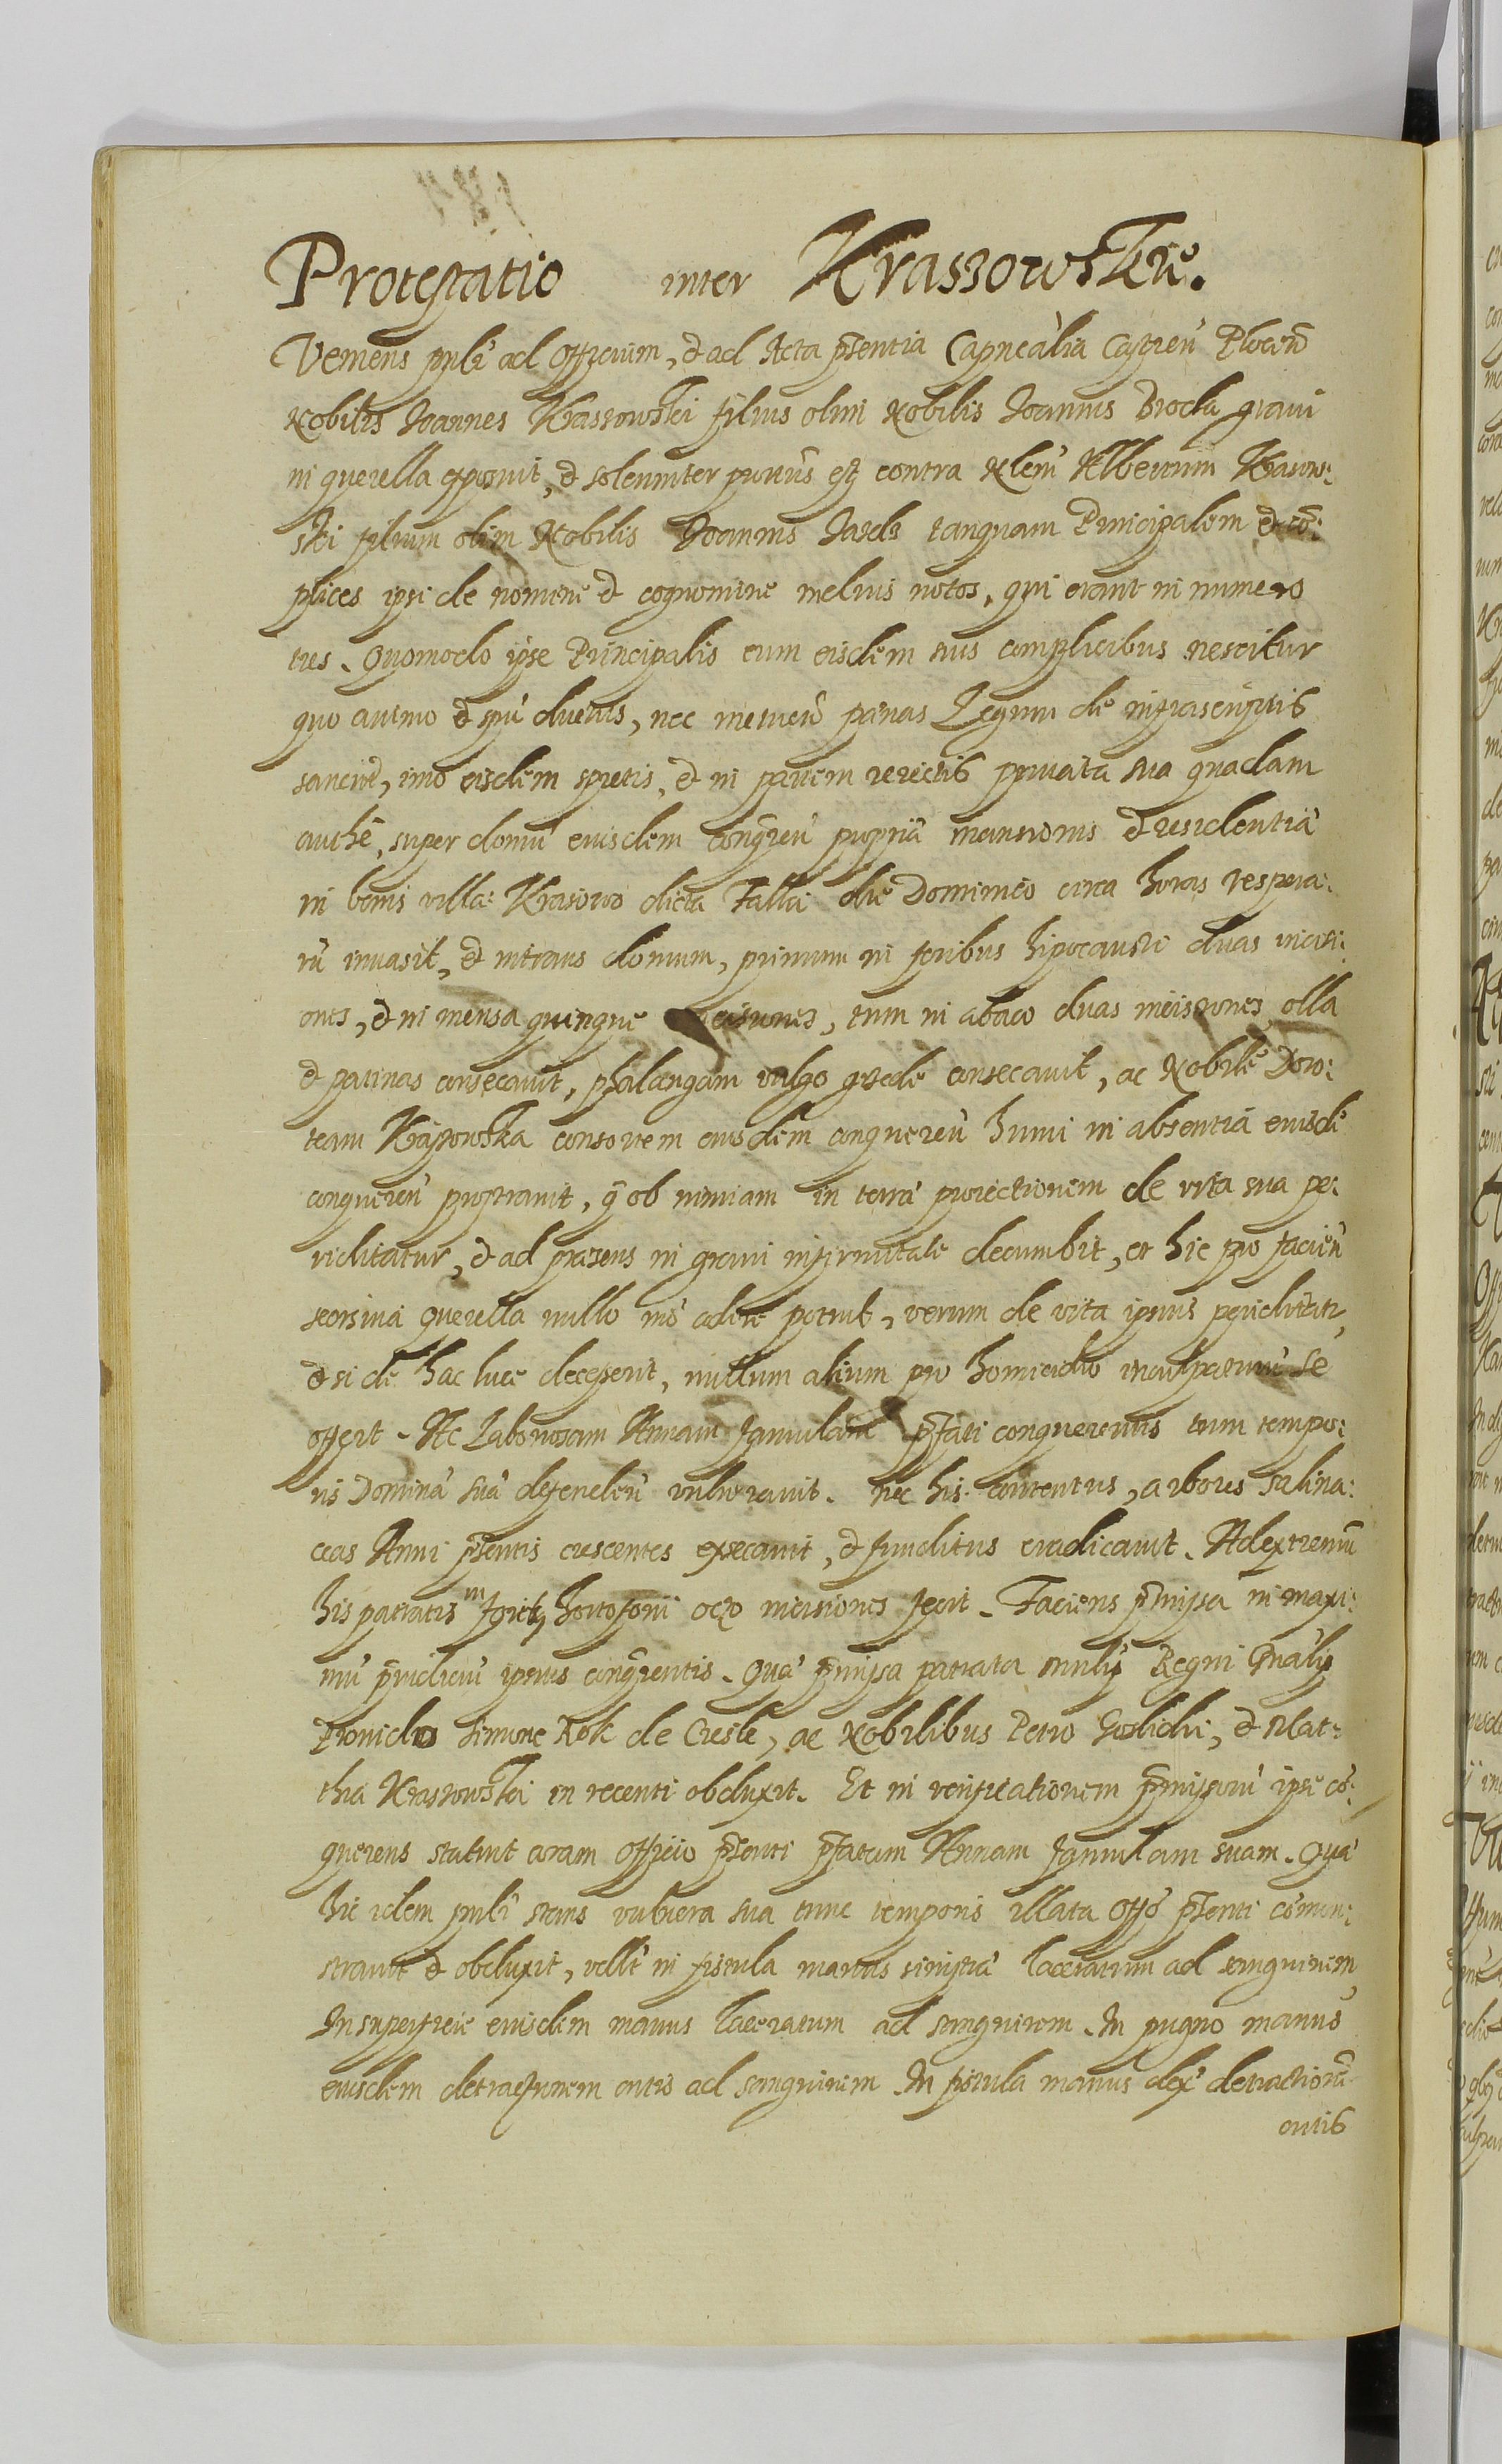 Protestatio inter Krassowskie.
Veniens psnlr ad Officium, et ad Acta psentia Capnealia Castren Plocen
Nobilis Joannes Krassowski filius olim Nobilis Joannis Brocka gravi
in querella exposuit, et solenniter protus est contra Nlem Albertum Krasow:
ski filium olim Nobilis Joannis tanquam Principalem et co:
plices ipsi de nomine et cognomine melius notos, qui erant in numero
tres. Quomodo ipse Principalis cum eisdem suis complicibus nescitur
quo animo et spu ductus, nec metuen pænas Legum de infrascriptis
sancitis, imo eisdem spretis, et in parvem reiectis privata sua quadam
authe, super domu eiusdem conqren propriā mansionis et residentiā
in bonis villæ Krasowo dicta Falki die Dominico circa horas vespera:
ru invasit, et intrans domum, primum in foribus hipocausti duas incisi:
ones, et in mensa quinque incisiones, tum in abaco duas incisiones, olla
et patinas consecavit, phalangam vulgo grzede consecavit, ac Nobile Doro:
team Krassowska consortem eiusdem conqueren humi in absentiā eiusde
conqueren prostravit, q ob nimiam in terrā proiectionem de vita sua pe:
riclitatur, et ad præsens in gravi infirmitate decumbit, et hic pro facien
seorsiva querella nullo mo adire potuit, verum de vita ipsius periclitatr,
et si de hac luce decesserit, nullum alium pro homicidio inculpaturu se
offert. Ac Laboriosam Annam famulam pfati conquerentis tum tempo:
ris Dominā suā defenden vulneravit. Nec his contentus, arbores salina:
ceas Anni psentis crescentes exsecavit, et funditus eradicavit. Ad extremu
his patratis in foribus octo incisiones fecit. Faciens pmissa in maxi:
mu pruditiu ipsius conqrentis. Quā pmissa patrata mnly Regni Gnaly
Providus Simone Rok de Ciesle, ac Nobilibus Petro Goslicki, et Mat:
thia Krassowski in recenti obduxit. Et in verificationem pmissoru ipse co:
querens statuit coram Officio psenti pfatam Annam famulam suam. Quæ
hic idem psnlr stans vulnera sua tunc temporis illata Offo psenti comon:
stravit et obduxit, vellt in fistula manus sinistrā laceratum ad sanguinem,
In superficie eiusdem manus laceratum ad sanguinem. In pugno manus
eiusdem detractionem cutis ad sanguinem. In fistula manus dex detractione
cutis